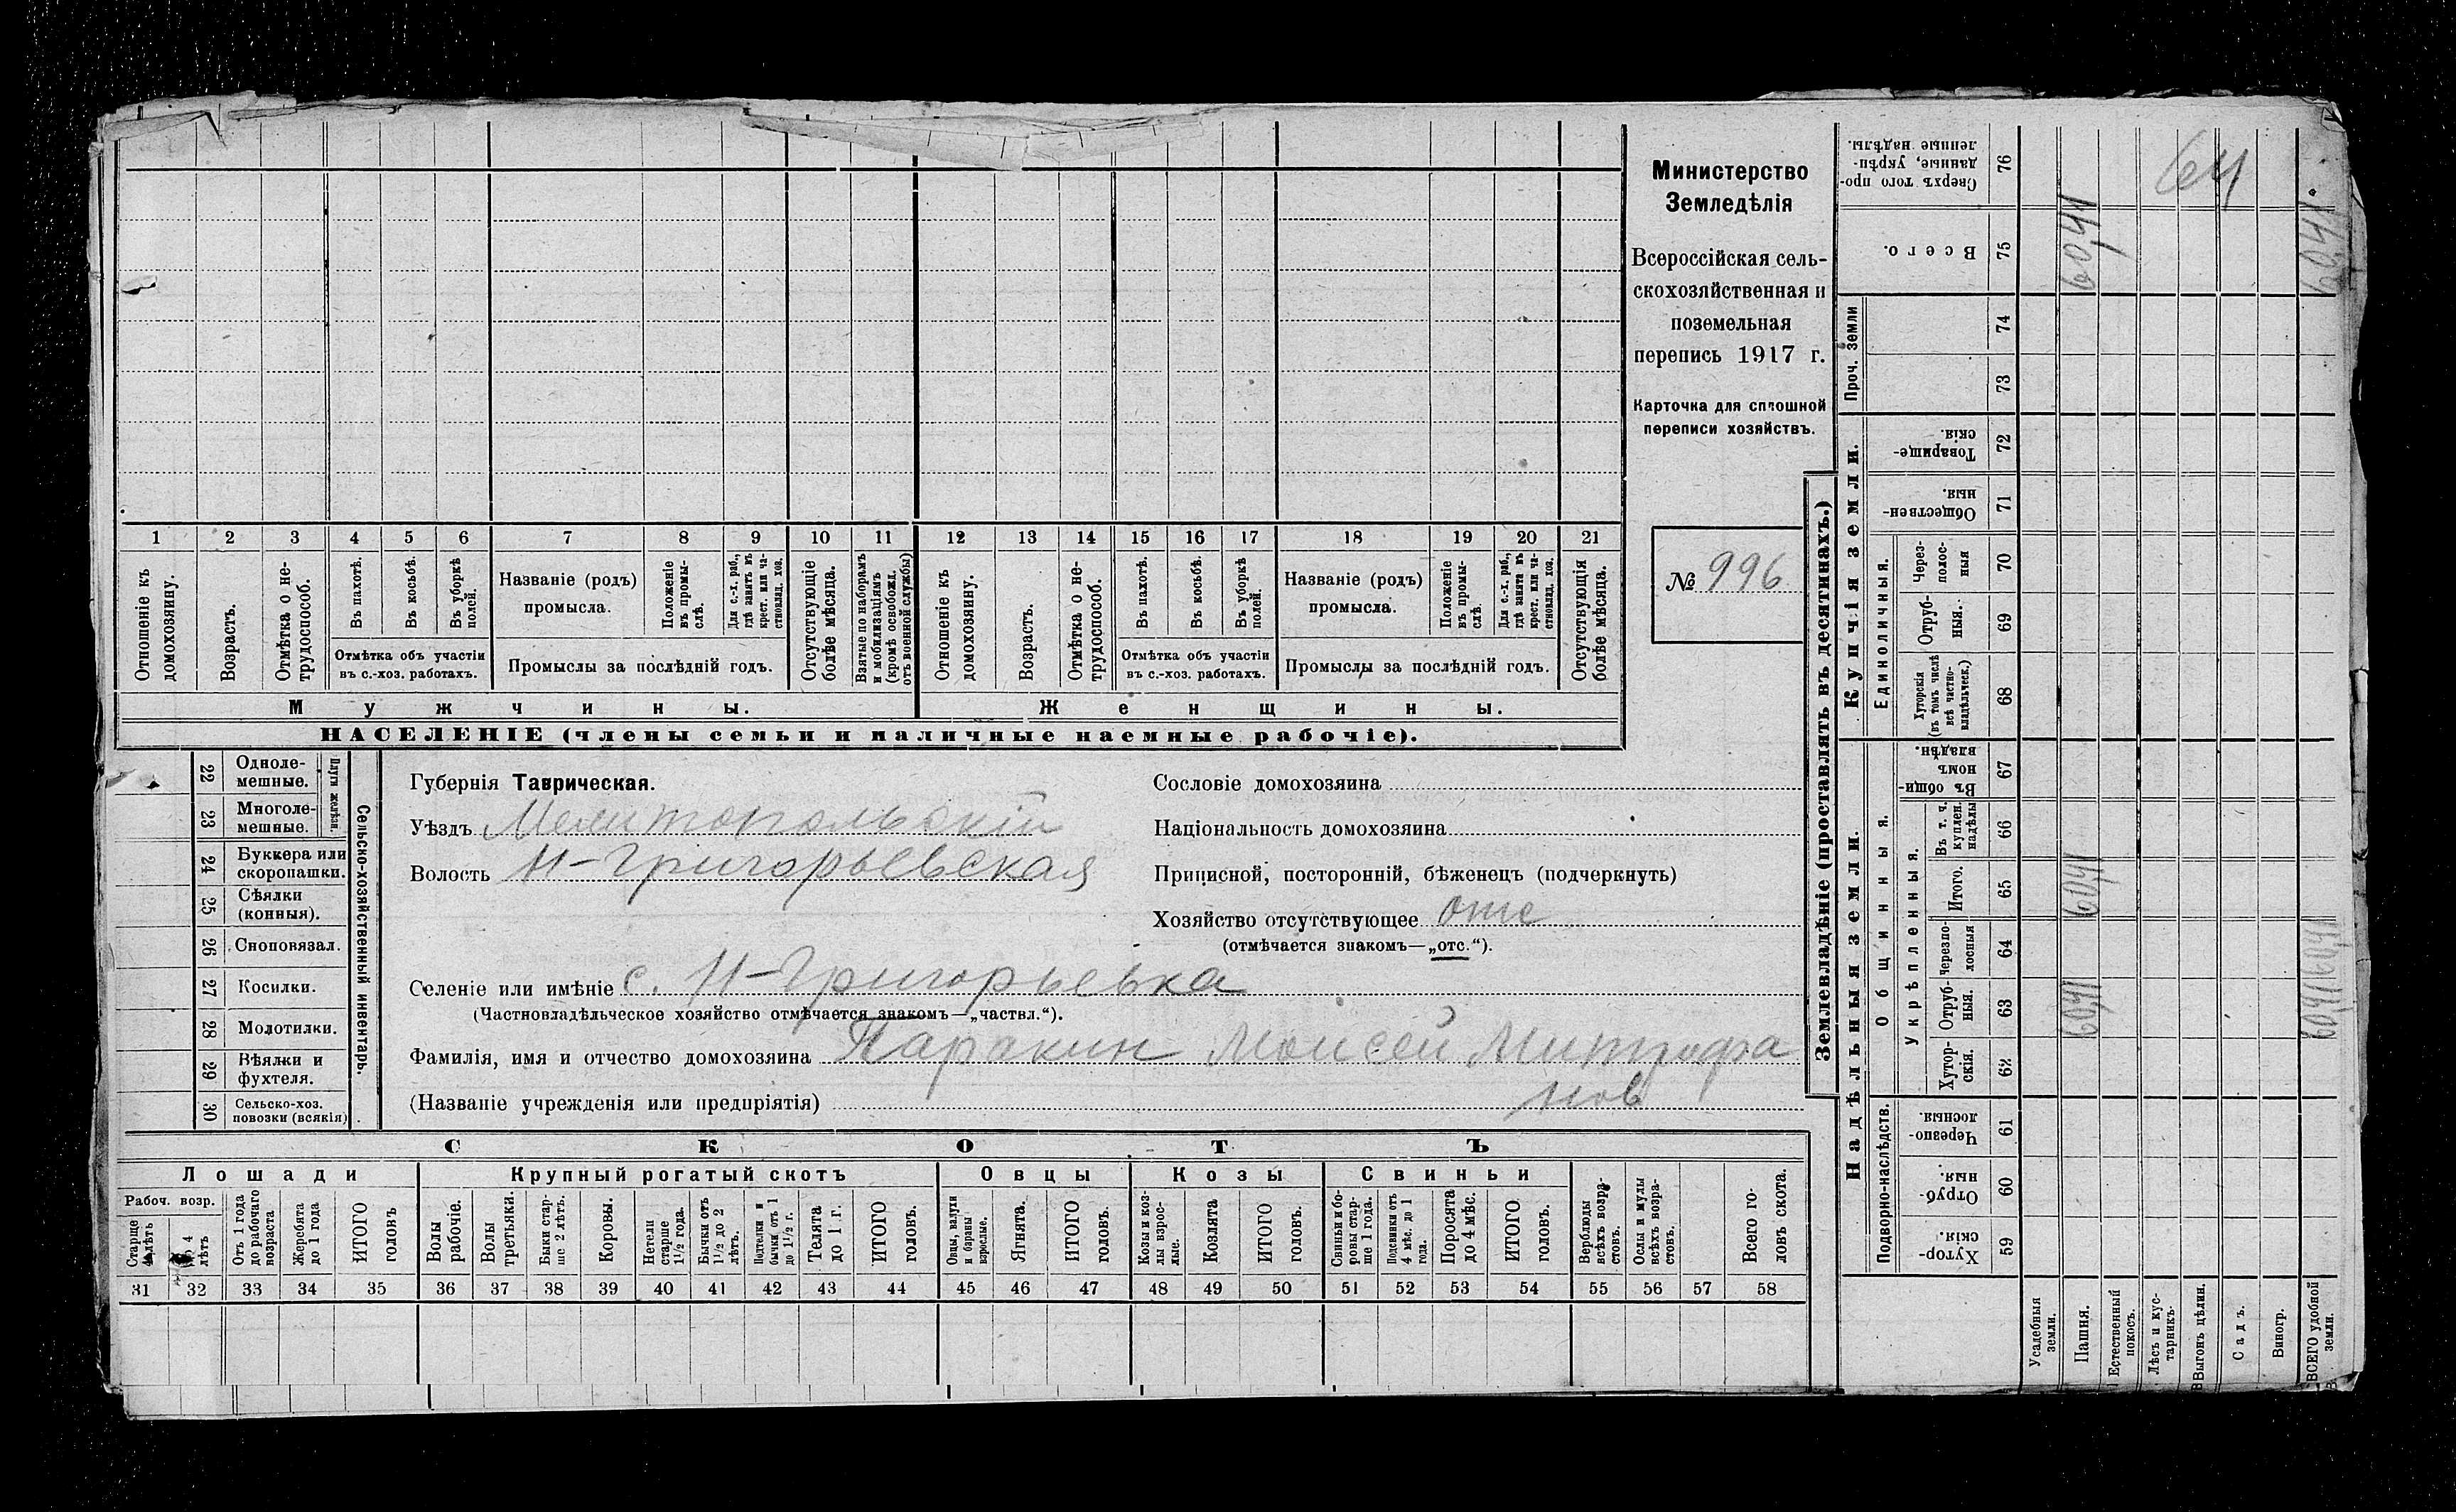 Министерство
Земледѣлія
Всероссійская сель-
скохозяйственная и
поземельная
перепись 1917 г.
Карточка для сплошной
переписи хозяйствъ.
№ 996
1 2 3 4 5 6 7 8 9 10 11 12 13 14 15 16 17 18 19 20 21
Отношеніе къ домохозяину.
Возрастъ.
Отмѣтка о не-трудоспособ.
Въ пахотѣ.
Въ косьбѣ.
Въ уборкѣ полей.
Отмѣтка объ участіи
въ с.-хоз. работахъ.
Названіе (родъ)
промысла.
Положеніе въ промы-слѣ.
Для с.-х. раб., гдѣ занятъ въ крест. или ча-стновлад. хоз.
Промыслы за послѣдній годъ.
Отсутствующіе болѣе мѣсяца.
Взятые по наборамъ и мобилизаціямъ (кромѣ освобожд. отъ военной службы)
Отношеніе къ домохозяину.
Возрастъ.
Отмѣтка о не-трудоспособ.
Въ пахотѣ.
Въ косьбѣ.
Въ уборкѣ полей.
Отмѣтка объ участіи
въ с.-хоз. работахъ.
Названіе (родъ)
промысла.
Положеніе въ промы-слѣ.
Для с.-х. раб., гдѣ занята въ крест. или ча-стновлад. хоз.
Промыслы за послѣдній годъ.
Отсутствующія болѣе мѣсяца.
Мужчины. Женщины.
НАСЕЛЕНІЕ (члены семьи и наличные наемные рабочіе).
22 Одноле-мешные.
23 Многоле-мешные.
Плуги желѣзн.
24 Буккера или скоропашки.
25 Сѣялки (конныя).
26 Сноповязал.
27 Косилки.
28 Молотилки.
29 Вѣялки и фухтеля.
30 Сельско-хоз. повозки (всякія)
Сельско-хозяйственный инвентарь.
Губернія Таврическая.
Уѣздъ Мелитопольскій
Волость Н-Григорьевская
Сословіе домохозяина
Національность домохозяина
Приписной, посторонній, бѣженецъ (подчеркнуть)
Хозяйство отсутствующее отс
(отмѣчается знакомъ—„отс.“).
Селеніе или имѣніе с. Н-Григорьевка
(Частновладѣльческое хозяйство отмѣчается знакомъ—„частвл.“).
Фамилія, имя и отчество домохозяина Паракин Моисей Митрофа
нов
(Названіе учрежденія или предпріятія)
СКОТЪ
Лошади Крупный рогатый скотъ Овцы Козы Свиньи
Рабоч. возр.
Старше 4 лѣтъ
До 4 лѣтъ
Отъ 1 года до рабочаго возраста
Жеребята до 1 года
ИТОГО головъ
Волы рабочіе.
Волы третьяки.
Быки стар-ше 2 лѣтъ.
Коровы.
Нетели старше 1½ года.
Бычки отъ 1½ до 2 лѣтъ.
Подтелки и бычки отъ 1 до 1½ г.
Телята до 1 г.
ИТОГО головъ.
Овцы, валухи и бараны взрослые.
Ягнята.
ИТОГО головъ.
Козы и коз-лы взрос-лые.
Козлята
ИТОГО головъ.
Свиньи и бо-ровы стар-ше 1 года.
Подсвинки отъ 4 мѣс. до 1 года.
Поросята до 4 мѣс.
ИТОГО головъ.
Верблюды всѣхъ возра-стовъ.
Ослы и мулы всѣхъ возра-стовъ.
Всего го-ловъ скота.
31 32 33 34 35 36 37 38 39 40 41 42 43 44 45 46 47 48 49 50 51 52 53 54 55 56 57 58
Землевладѣніе (проставлять въ десятинахъ.)
Надѣльныя земли.
Купчія земли.
Проч. земли
Подворно-наслѣдств.
Общинныя.
Укрѣпленныя.
Единоличныя.
Сверхъ того про-данные, укрѣп-ленные надѣлы. 76
Всего. 75
74
73
Товарище-скія. 72
Обществен-ныя. 71
Через-полос-ныя 70
Отруб-ныя. 69
Хуторскія (въ томъ числѣ всѣ частно-владѣльческ.) 68
Въ общи-номъ владѣн. 67
Въ т. ч. куплен. надѣлы 66
Итого. 65
Черезпо-лосныя 64
Отруб-ныя. 63
Хутор-скія. 62
Черезпо-лосныя. 61
Отруб-ныя. 60
Хутор-скія. 59
Усадебныя земли.
Пашня.
Естественный покосъ.
Лѣсъ и кус-тарникъ.
Выгонъ цѣлин.
Садъ.
Виногр.
ВСЕГО удобной земли.
64
60,41
60,41
60,41
60,41
60,41